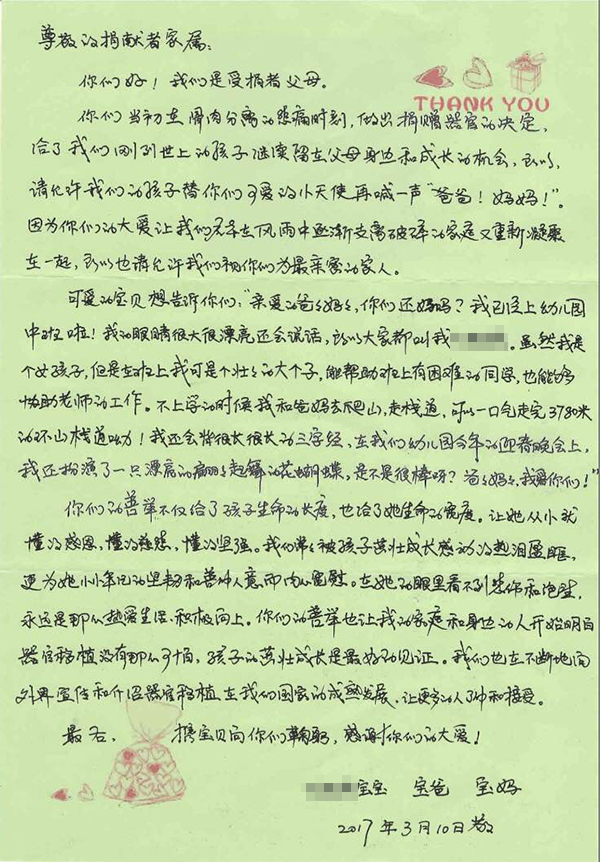 尊敬的捐献者家属：
THANK YOU
你们好！我们是受捐者父母。
你们当初在骨肉分离的悲痛时刻，做出捐赠器官的决定，
给了我们刚到世上的孩子继续留在父母身边和成长的机会，所以，
请允许我们的孩子替你们可爱的小天使再喊一声“爸爸！妈妈！”。
因为你们的大爱让我们在风雨中逐渐支离破碎的家庭又重新凝聚
在一起，所以也请允许我们视你们为最亲密的家人。
可爱的宝贝想告诉你们：“亲爱的爸爸妈妈，你们还好吗？我已经上幼儿园
中班啦！我的眼睛很大很漂亮还会说话，所以大家都叫我 。虽然我是
个女孩子，但是在班上我可是个壮壮的大个子，能帮助班上有困难的同学，也能够
协助老师的工作。不上学的时候我和爸妈去爬山，走栈道，可以一口气走完3780米
的环山栈道呦！我还会背很长很长的三字经，在我们幼儿园今年的迎春晚会上，
我还扮演了一只漂亮的翩翩起舞的花蝴蝶，是不是很棒呀？爸爸妈妈，我爱你们！”
你们的善举不仅给了孩子生命的长度，也给了她生命的宽度。让她从小就
懂得感恩，懂得慈悲，懂得坚强。我们常常被孩子茁壮成长感动得热泪盈眶，
更为她小小年纪的坚韧和善解人意而内心宽慰。在她的眼里看不到悲伤和绝望，
永远是那么热爱生活、积极向上。你们的善举也让我的家庭和身边的人开始明白
器官移植没有那么可怕，孩子的茁壮成长是最好的见证。我们也在不断地向
外界宣传和介绍器官移植在我们国家的成熟发展，让更多的人了解和接受。
最后， 携宝贝向你们鞠躬，感谢你们的大爱！
宝宝 宝爸 宝妈
2017年3月10日敬